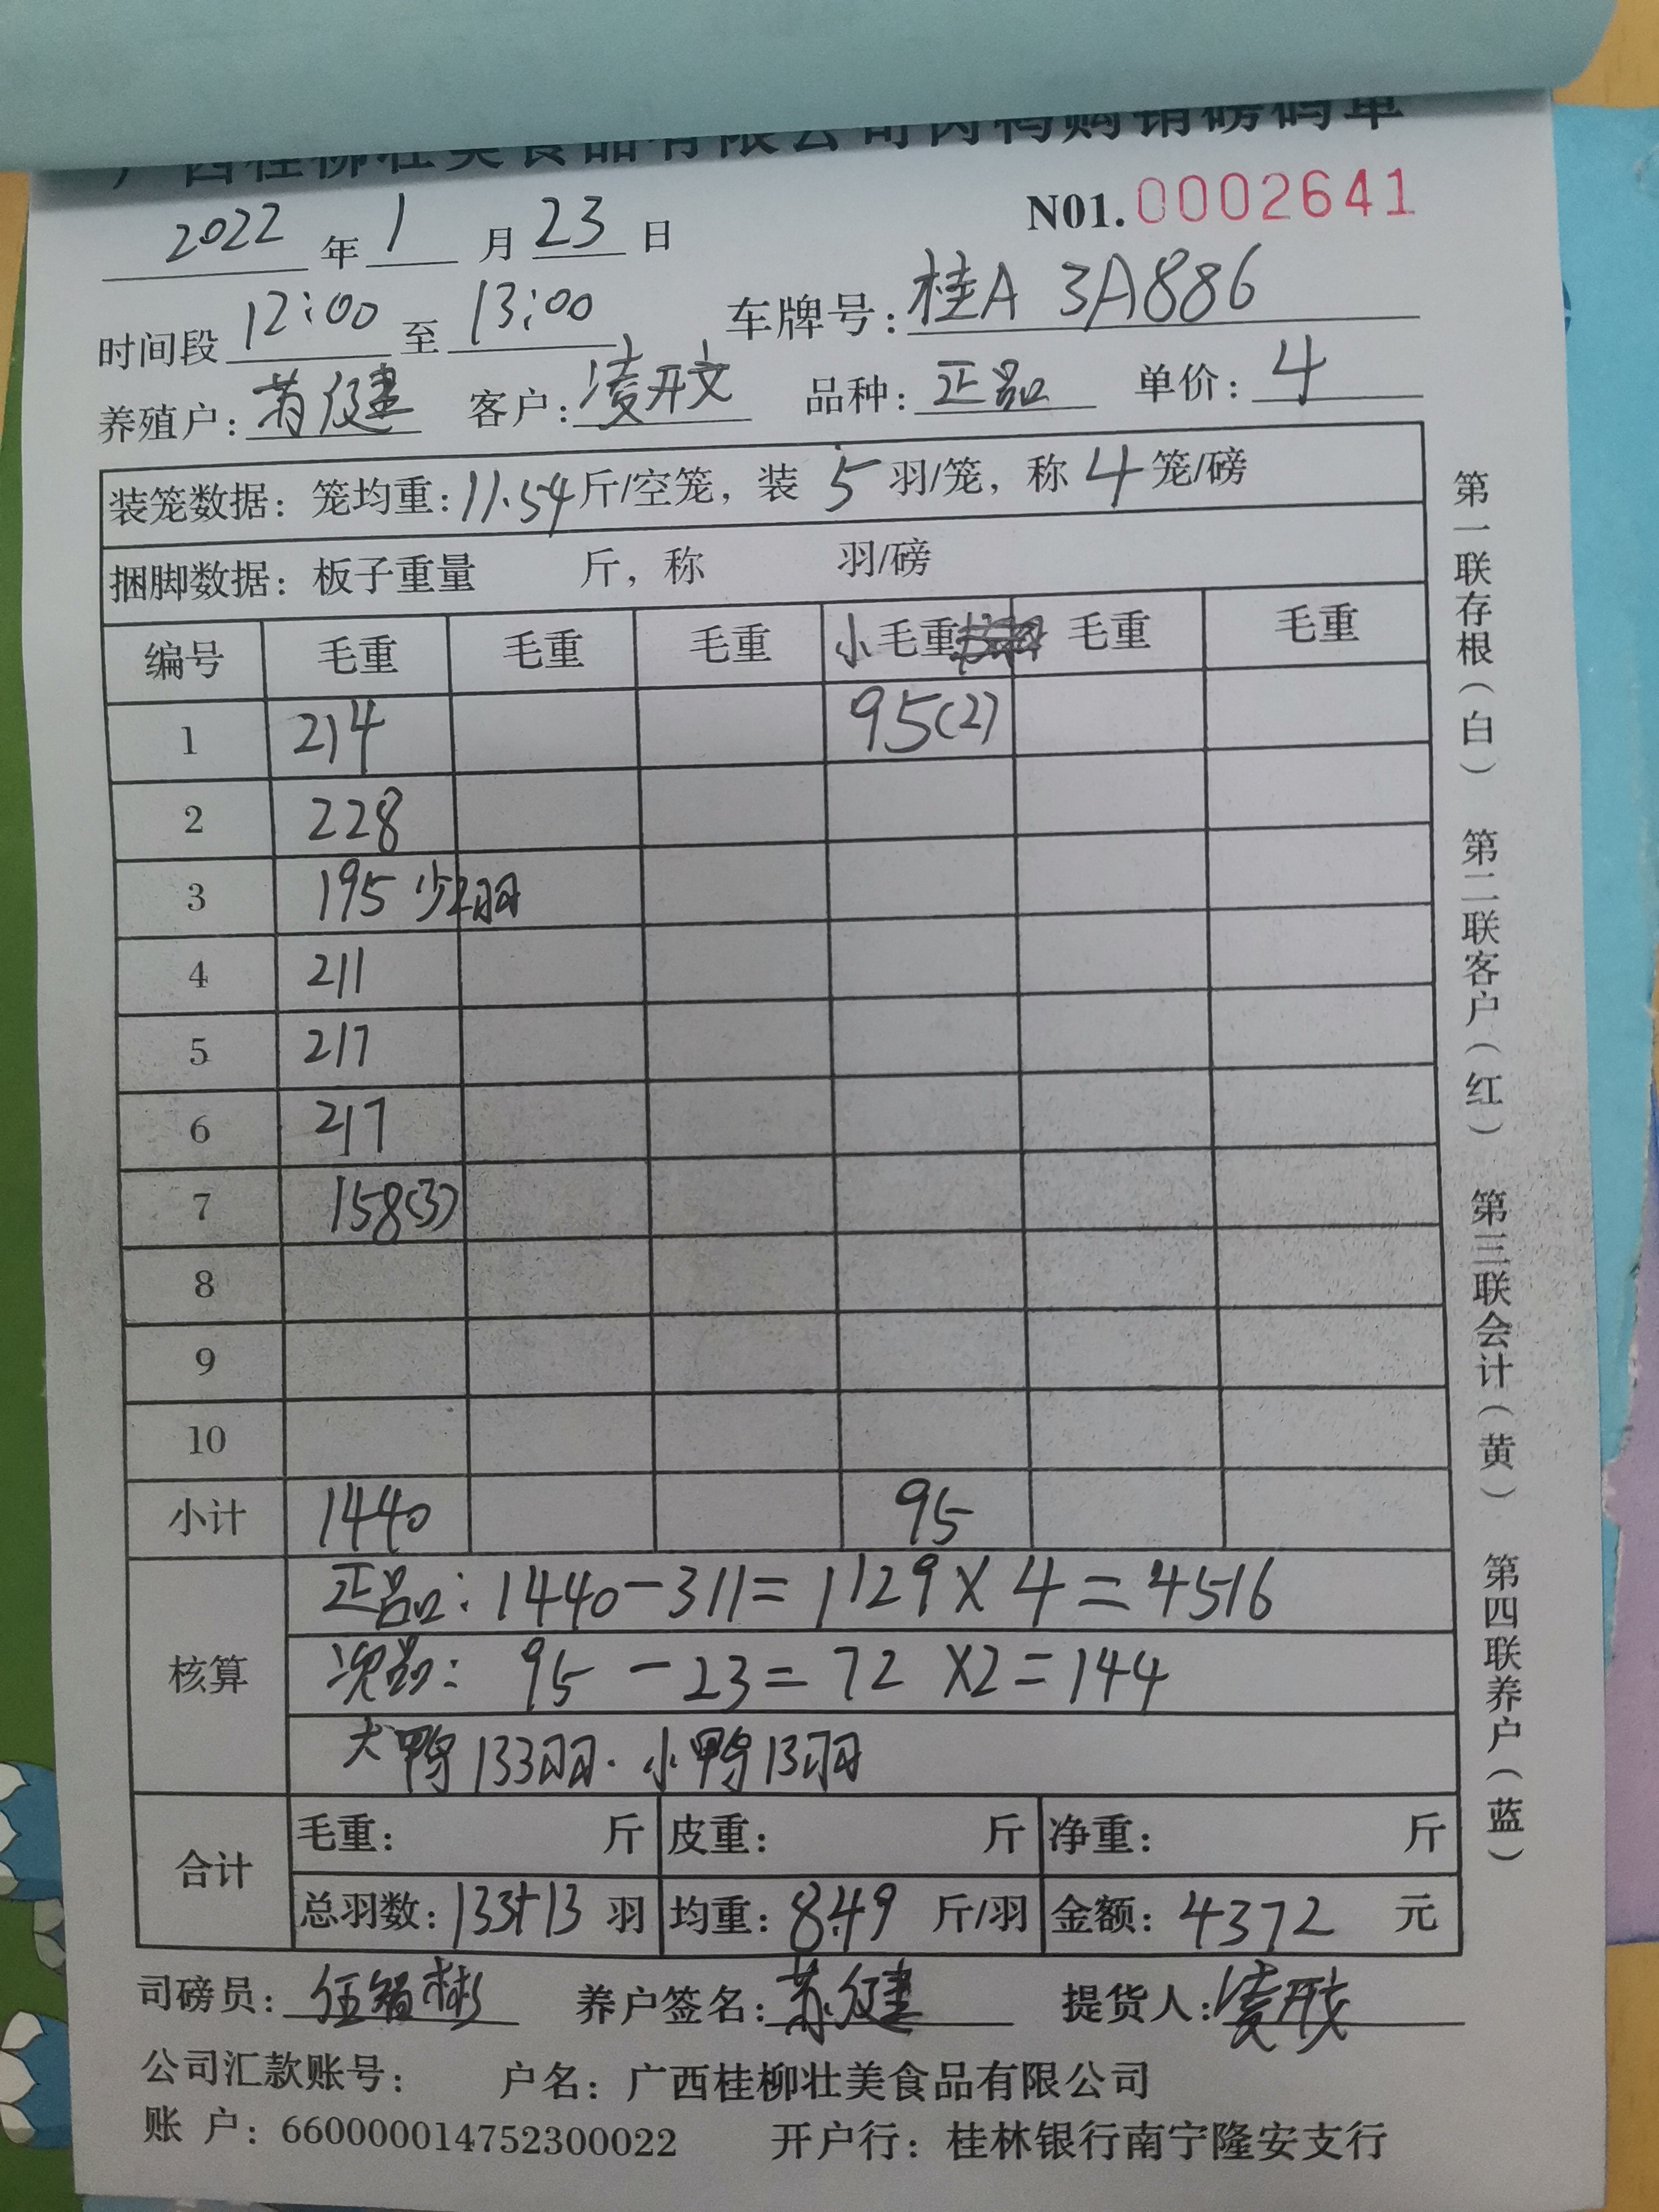 广西桂柳壮美食品有限公司肉鸭购销磅码单
2022年1月23日 N01.0002641
时间段12:00至13:00 车牌号:桂A 3A886
养殖户:苏健 客户:凌开文 品种:正品 单价:4
装笼数据:笼均重:11.54斤/空笼,装5羽/笼,称4笼/磅
捆脚数据:板子重量 斤,称 羽/磅
编号 毛重 毛重 毛重 小毛重 毛重 毛重
1 214 95(2)
2 228
3 195 少2羽
4 211
5 217
6 217
7 158(3)
8
9
10
小计 1440 95
核算 正品:1440-311=1129×4=4516
次品:95-23=72×2=144
大鸭133羽.小鸭13羽
合计 毛重: 斤 皮重: 斤 净重: 斤
总羽数:133+13羽 均重:8.49斤/羽 金额:4372元
司磅员:伍 彬 养户签名:苏健 提货人:凌开文
公司汇款账号: 户名:广西桂柳壮美食品有限公司
账户:660000014752300022 开户行:桂林银行南宁隆安支行
第一联存根(白) 第二联客户(红) 第三联会计(黄) 第四联养户(蓝)